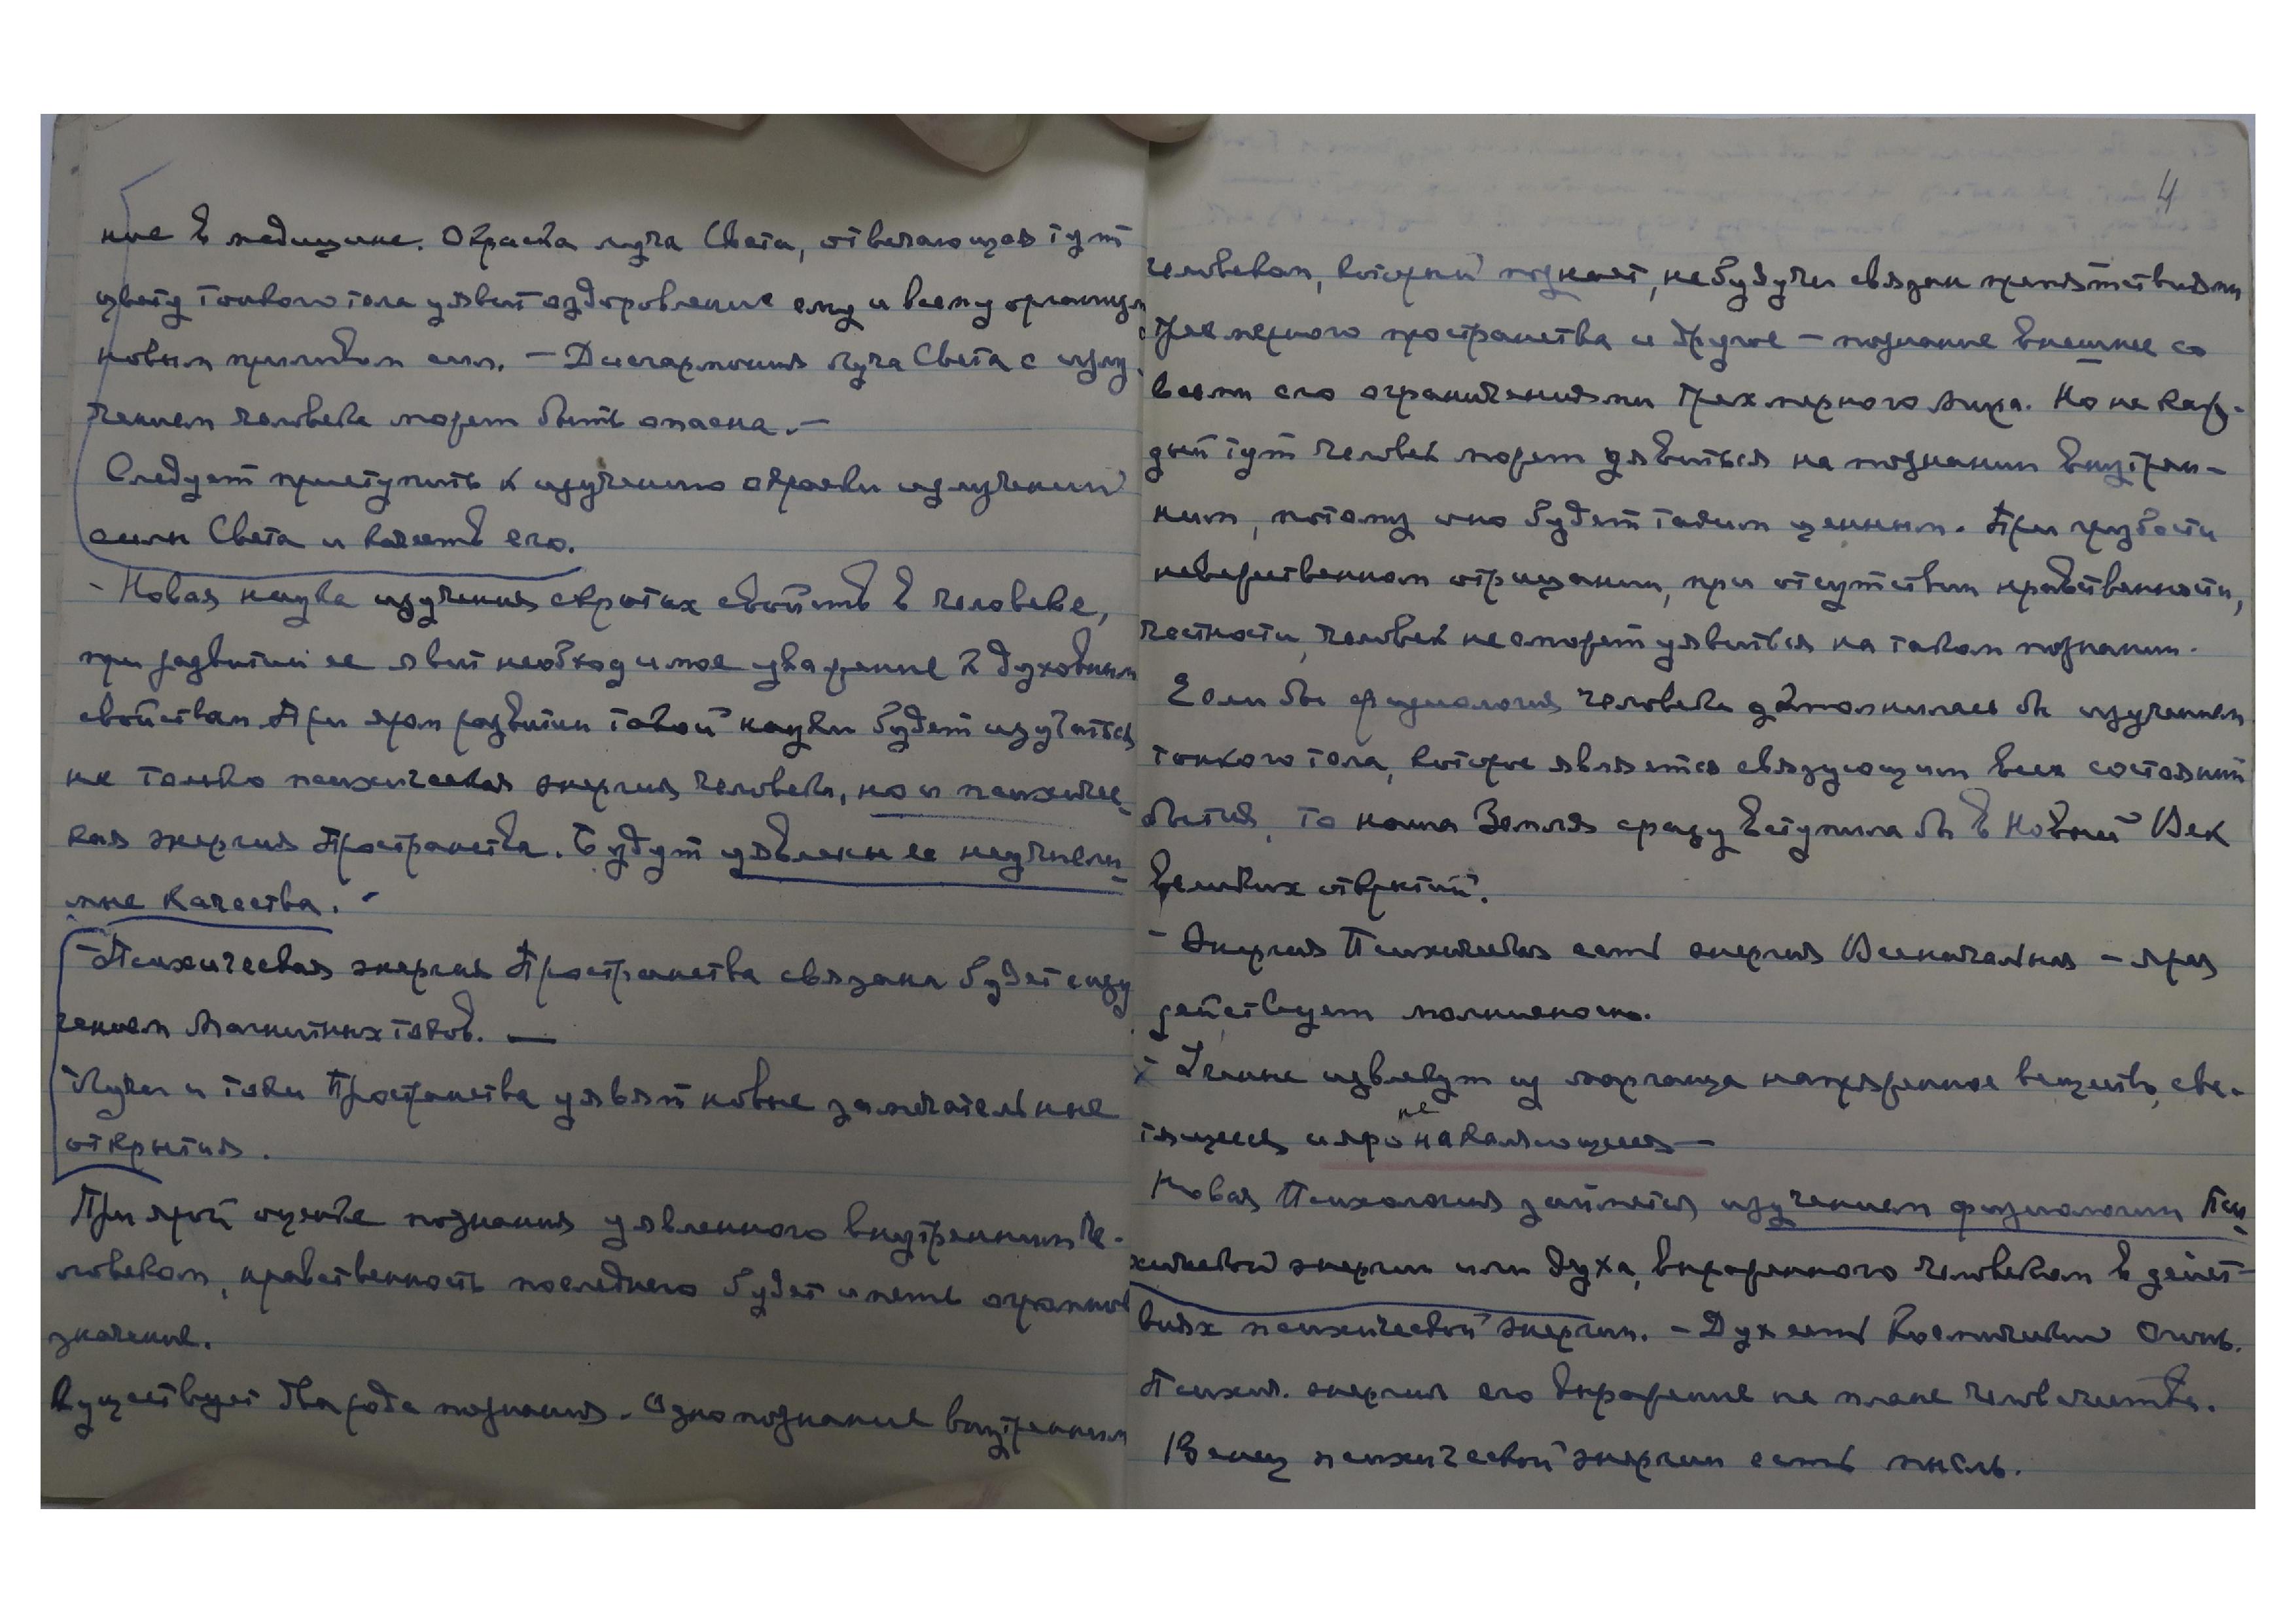 ние в медицине. Окраска луча Света, отвечающая тут
цвету тонкого тела уявит оздоровление ему и всему организму
новым приливом сил. — Дисгармония луча Света с излу-
чением человека может быть опасна. —
Следует приступить к изучению окраски излучений
силы Света и качеств его.
- Новая наука изучения скрытых свойств в человеке,
при развитии ее явит необходимое уважение к духовным
свойствам. При яром развитии такой науки будет изучаться
не только психическая энергия человека, но и психичес-
кая энергия Пространства. Будут уявлены ее неучисли-
мые качества. -
- Психическая энергия Пространства связана будет с изу
чением Магнитных токов. —
- Лучи и токи Пространства уявят новые замечательные
открытия.
При ярой оценке познания уявленного внутренним че-
ловеком, нравственность последнего будет иметь огромное
значение.
Существует два рода познания. Одно познание внутренним
4
человеком, который познает, не будучи связан препятствиями
трехмерного пространства и другое — познание внешнее со
всеми его ограничениями трехмерного мира. Но не каж-
дый тут человек может уявиться на познании внутрен-
ним, потому оно будет таким ценным. При грубости
невежественном отрицании, при отсутствии нравственности,
честности, человек не сможет уявиться на таком познании.
Если бы физиология человека дополнилась бы изучением
тонкого тела, которое является связующим всех состояний
бытия, то наша Земля сразу вступила бы в Новый Век
великих открытий.
- Энергия Психическая есть энергия Всеначальная — яро
действует молниеносно.
- Ученые извлекут из марганца напряженное вещество, све-
не
тящееся и яро накаляющееся —
Новая Психология займется изучением физиологии Пси-
хической энергии или духа, выраженного человеком в дейст-
виях психической энергии. - Дух есть Космический Огонь.
Психич. энергия его выражение на плане человечества.
Венец психической энергии есть мысль.